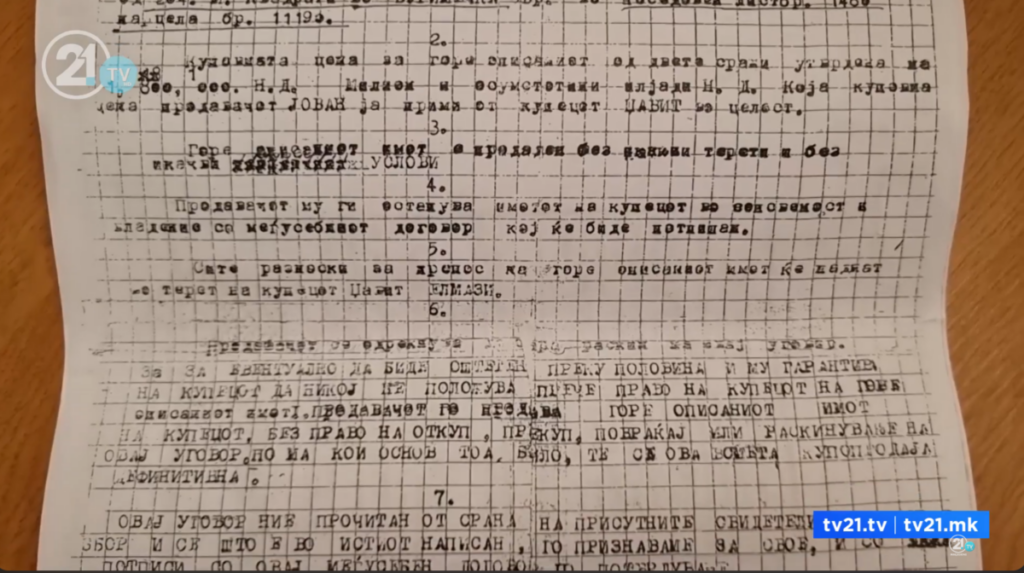 парцела бр. 11195.
2.
Куповната цена за горе описаниот од двете срани утврдена на
1 800, 000. Н.Д. Милион и осумстотини илјади Н. Д. Која куповна
цена продавачот ЈОВАН ја прими от купецот ЏАВИТ во целост.
3.
Гора описаниот имот е продаден без никакви терети и без
никакви УСЛОВИ
4.
Продавачот му ги остапува имотот на купецот во
владение со меѓусебниот договор кој ќе биде потпишан.
5.
Сите разноски за препос на горе описаниот имот ќе паднат
на терет на купецот Џавит ЕЛМАЗИ.
6.
Продавачот се одрекнува раскин на овај уговор.
ЗА ЕВЕНТУАЛНО ДА БИДЕ ОШТЕТЕН ПРЕКУ ПОЛОВИНА И МУ ГАРАНТИВА
НА КУПЕЦОТ ДА НИКОЈ НЕ ПОЛОЖУВА ПРАВО НА КУПЕЦОТ НА ГОРЕ
описаниот имот. ПРЕДАВАЧЕТ ГО ГОРЕ ОПИСАНИОТ ИМОТ
НА КУПЕЦОТ, БЕЗ ПРАВО НА ОТКУП, ПРЕКУП, ПОВРАЌАЈ ИЛИ РАСКИНУВАЊЕ НА
ОВАЈ УГОВОР, ПО НА КОИ ОСНОВ ТОА, БИЛО, ТЕ СЕ ОВА КУПОПРОДАЈА
ДЕФИНИТИВНА.
7.
ОВАЈ УГОВОР НИЕ ПРОЧИТАН ОТ СРАНА НА ПРИСУТНИТЕ СВИДЕТЕЛИ
ЗБОР И СЕ ШТО Е ВО ИСТИОТ НАПИСАН, ГО ПРИЗНАВАМЕ ЗА СВОЕ, И СО
ПОТПИСИ СО ОВАЈ МЕЃУСЕБЕН
21.TV
tv21.tv | tv21.mk
21.TV